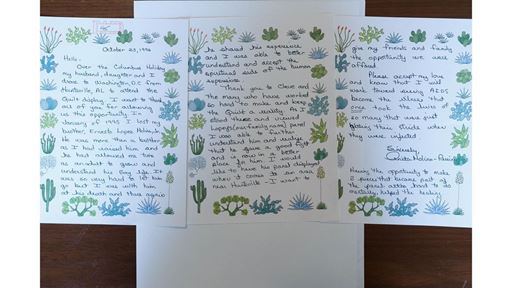 October 23, 1996
Hello,
Over the Columbus Holiday
my husband, daughter and I
drove to Washington, DC from
Huntsville, AL to attend the
Quilt display. I want to thank
all of you for allowing
us this opportunity. In
January of 1995 I lost my
brother, Ernesto Lopez
He was more than a brother
as I had raised him and
he had allowed me time
as an adult to grow and
understand his Gay life. It
was so very hard to let him
go but I was with him
at his death and thus again
he shared this experience
and I was able to better
understand and accept the
spiritual side of the human
experience.
Thank you to Cleve and
the many who have worked
so hard to make and keep
the Quilt a reality. As I
stood there and viewed
(our family name) panel
I was able to further
understand him and realize
he gave a good fight
and is now in a better
place. In fact, I would
like to have his panel displayed
when it comes to an area
near Huntsville - I want to
give my friends and family
the opportunity we were
offered.
Please accept my love
and know that I will
work toward seeing AIDS
become the illness that
once took the lives of
so many that were just
hitting their stride when
they were infected
Sincerely,
Having the opportunity to make
a panel that became part of
the
mentally, helped the healing